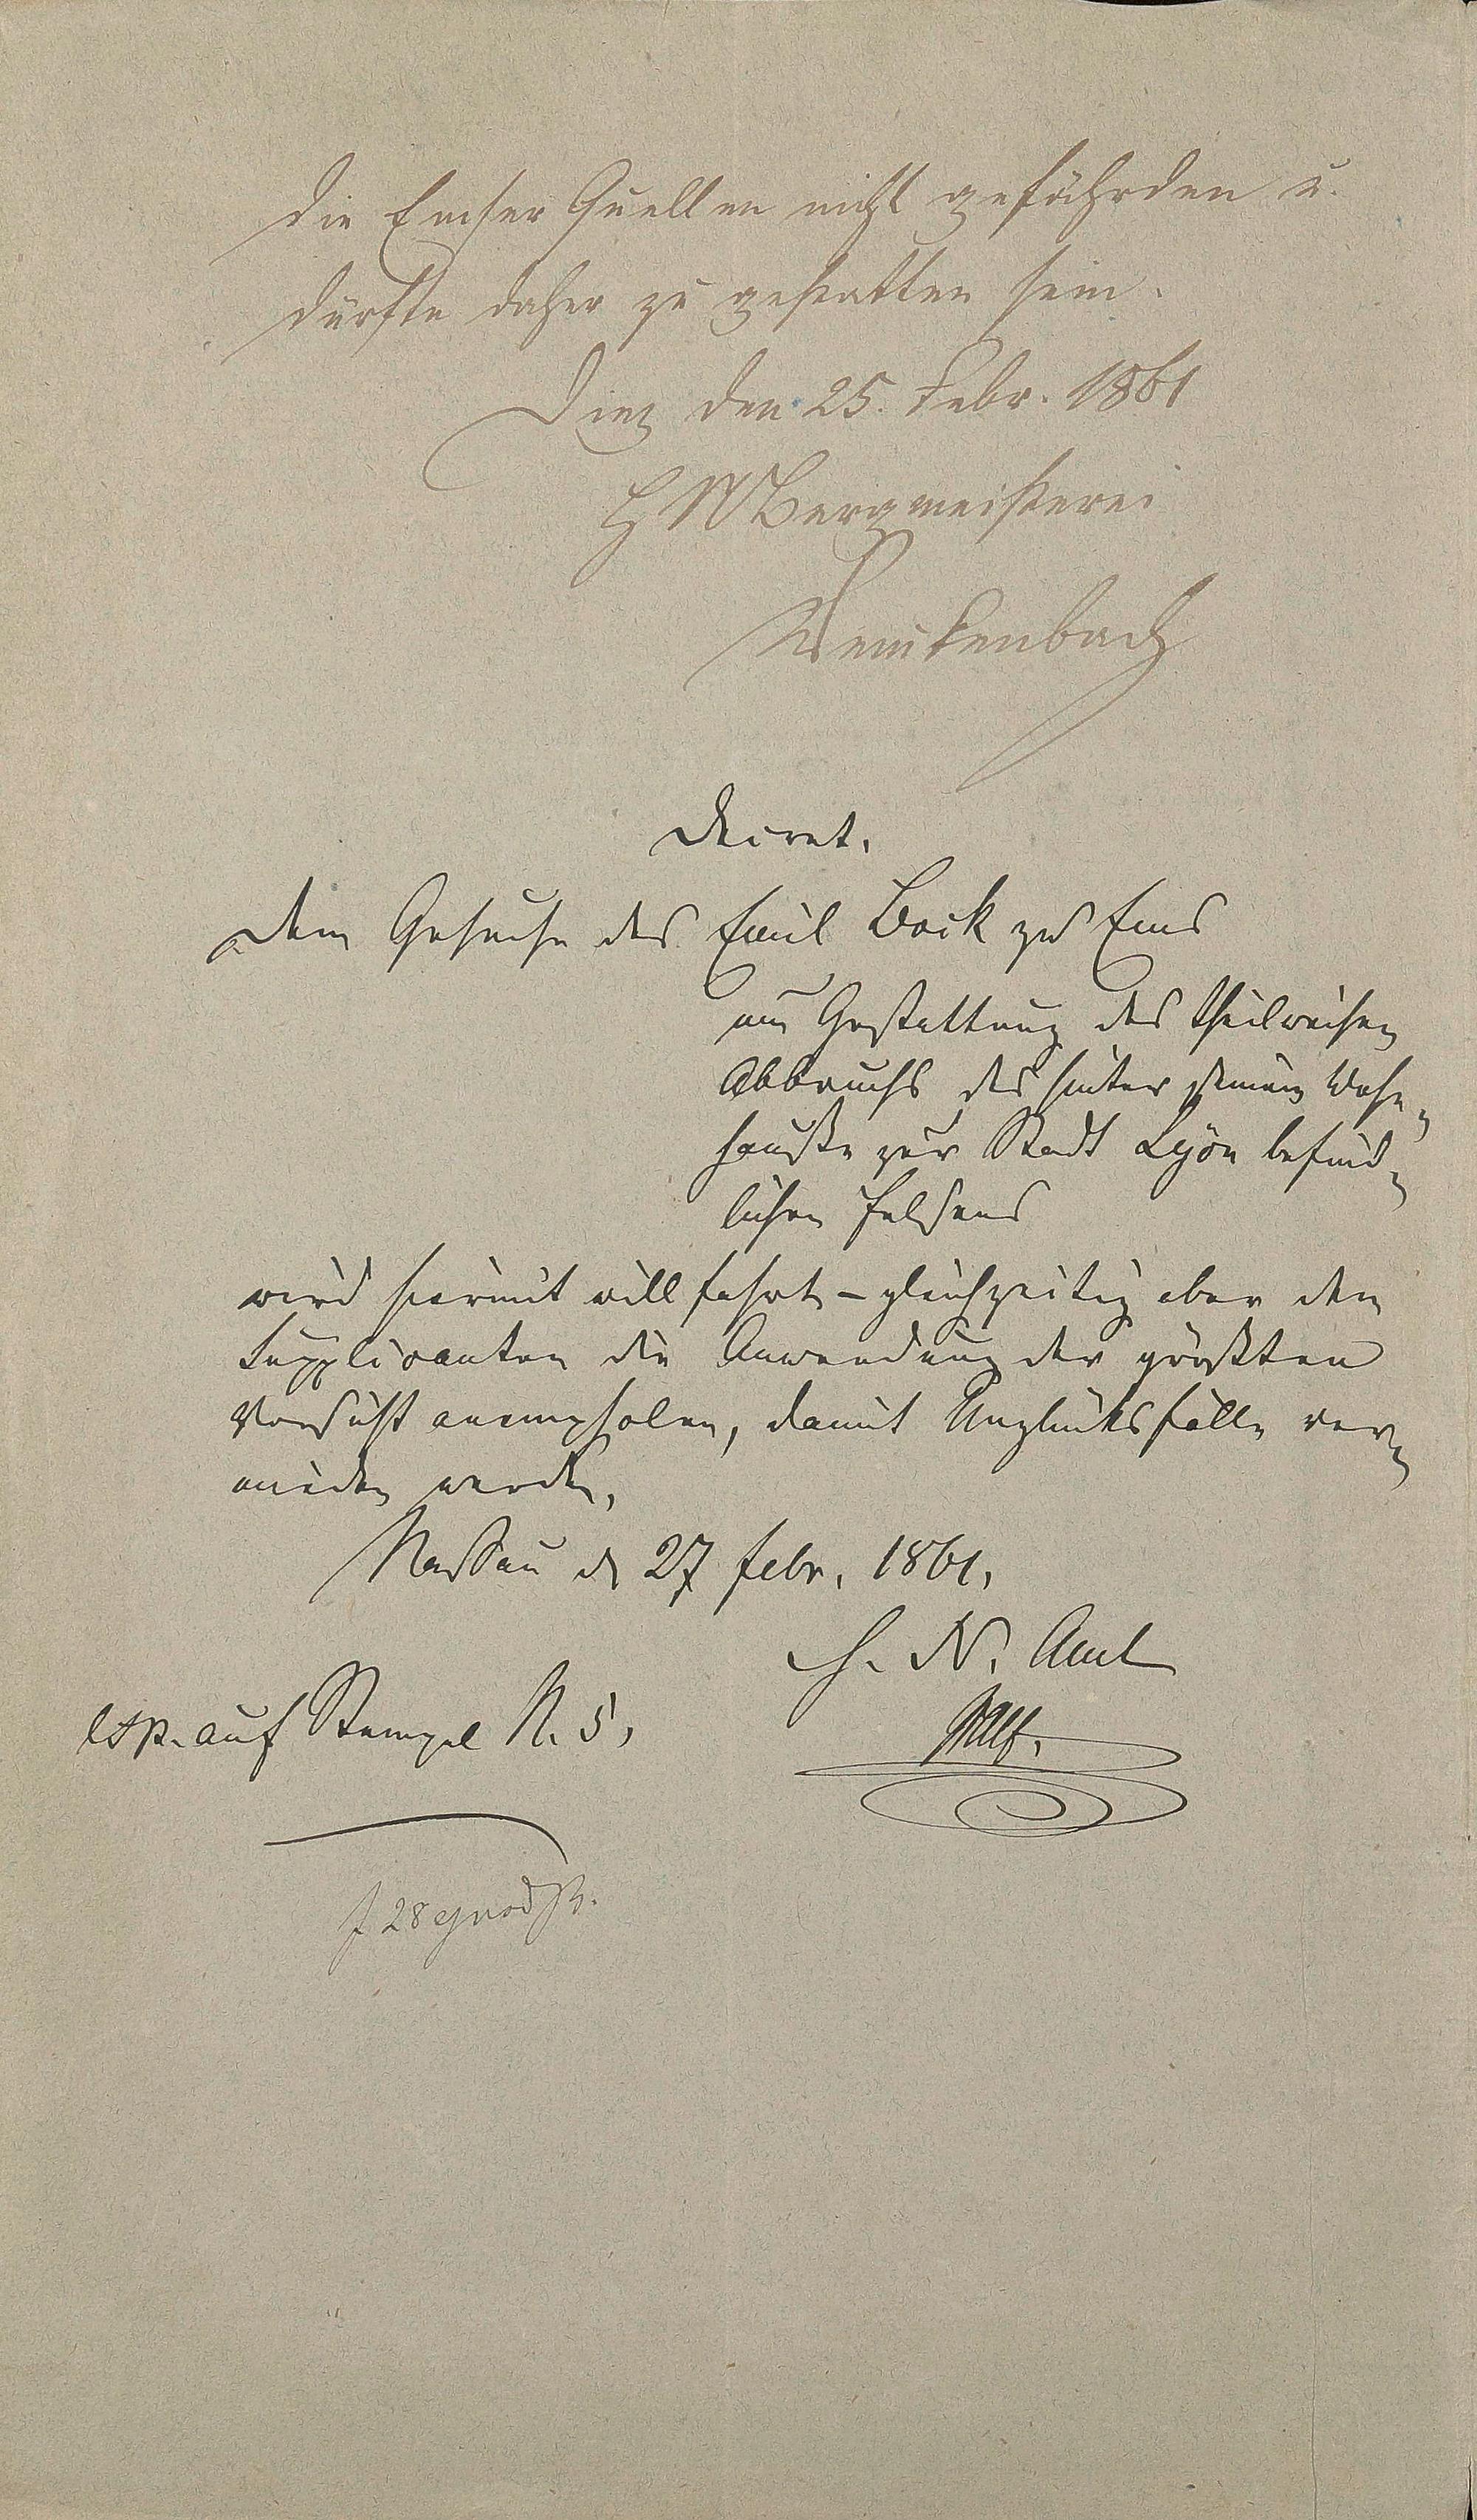 die Emser Quellen nicht gefährden u.
dürfte daher zu gestatten sein.
Diez den 25. Febr. 1861
H N Bergmeisterei
Wenckenbach
Decret.
Dem Gesuche des Emil Bock zu Ems
um Gestattung des theilweisen
Abbruchs des hinter seinem Wohn-
hauße zur Stadt Lyon befind-
lichen Felsens
wird hiermit willfahrt – gleichzeitig aber dem
Supplicanten die Anwendung der größten
Vorsicht anempfohlen, damit Unglücksfälle ver-
mieden werden.
Nassau d 27 Febr. 1861.
H. N. Amt
exp. auf Stempel N. 5,